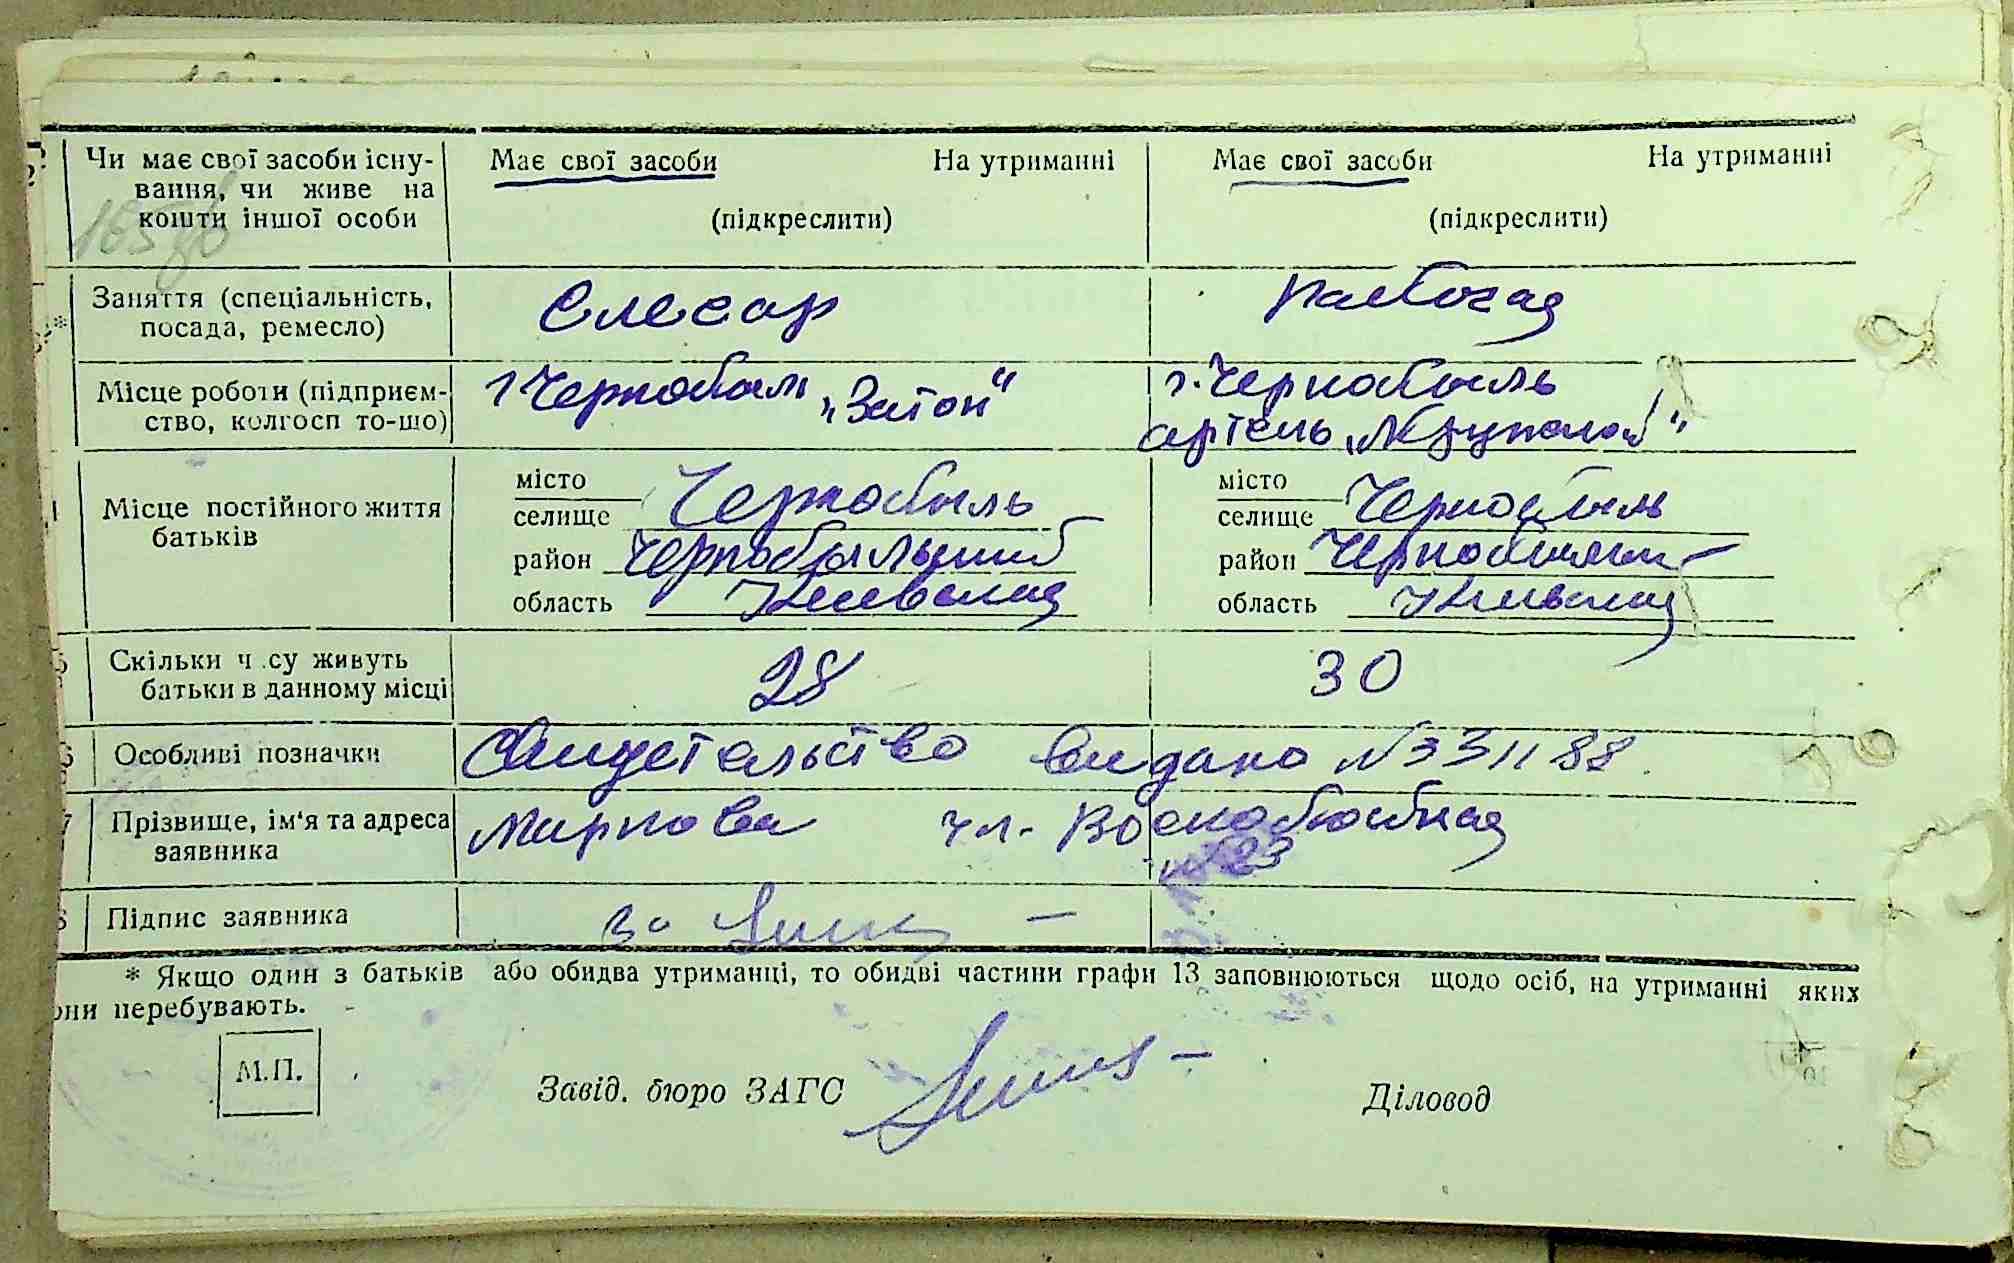 Чи має свої засоби існу-
вання, чи живе на
кошти іншої особи
Має свої засоби На утриманні
(підкреслити)
Має свої засоби На утриманні
(підкреслити)
Заняття (спеціальність,
посада, ремесло)
Слесар
Місце роботи (підприєм-
ство, колгосп то-що)
г Чернобыль „Затон“
г. Чернобыль
артель „Крупской“
Місце постійного життя
батьків
місто
селище Чернобыль
район Чернобыльский
область Киевская
місто
селище Чернобыль
район
область Киевская
Скільки ч су живуть
батьки в данному місці
28
30
Особливі позначки
Свидетельство видано №331188
Прізвище, ім'я та адреса
заявника
ул.
№23
Підпис заявника
за
* Якщо один з батьків або обидва утриманці, то обидві частини графи 13 заповнюються щодо осіб, на утриманні яких
они перебувають.
М.П.
Завід. бюро ЗАГС
Діловод